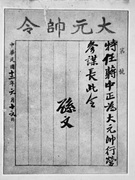 大元帥令
特任蔣中正為大元帥行營
參謀長此令
孫文
中華民國十二年六月十七日